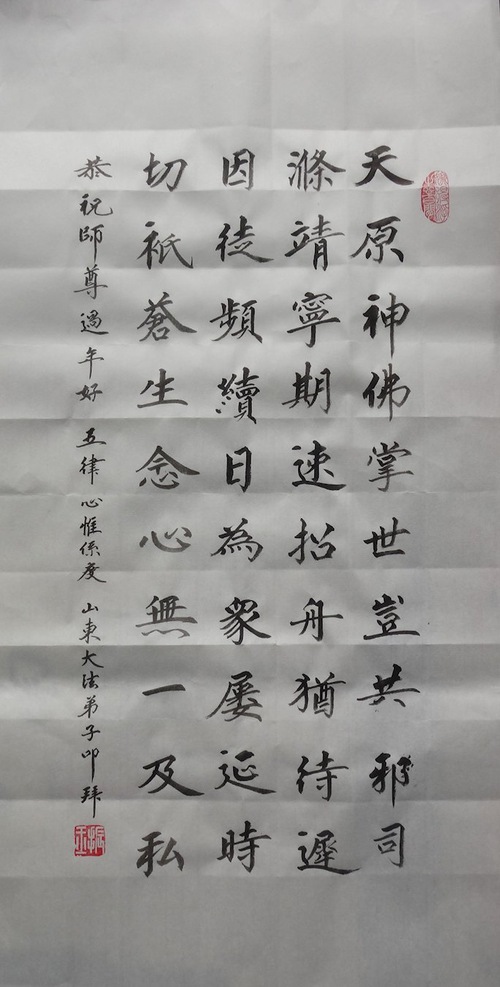 天原神佛掌世豈共邪司
滌靖寧期速招舟猶待遲
因徒頻續日為眾屢延時
切祇蒼生念心無一及私
恭祝師尊過年好 五律 心惟係度 山東大法弟子叩拜